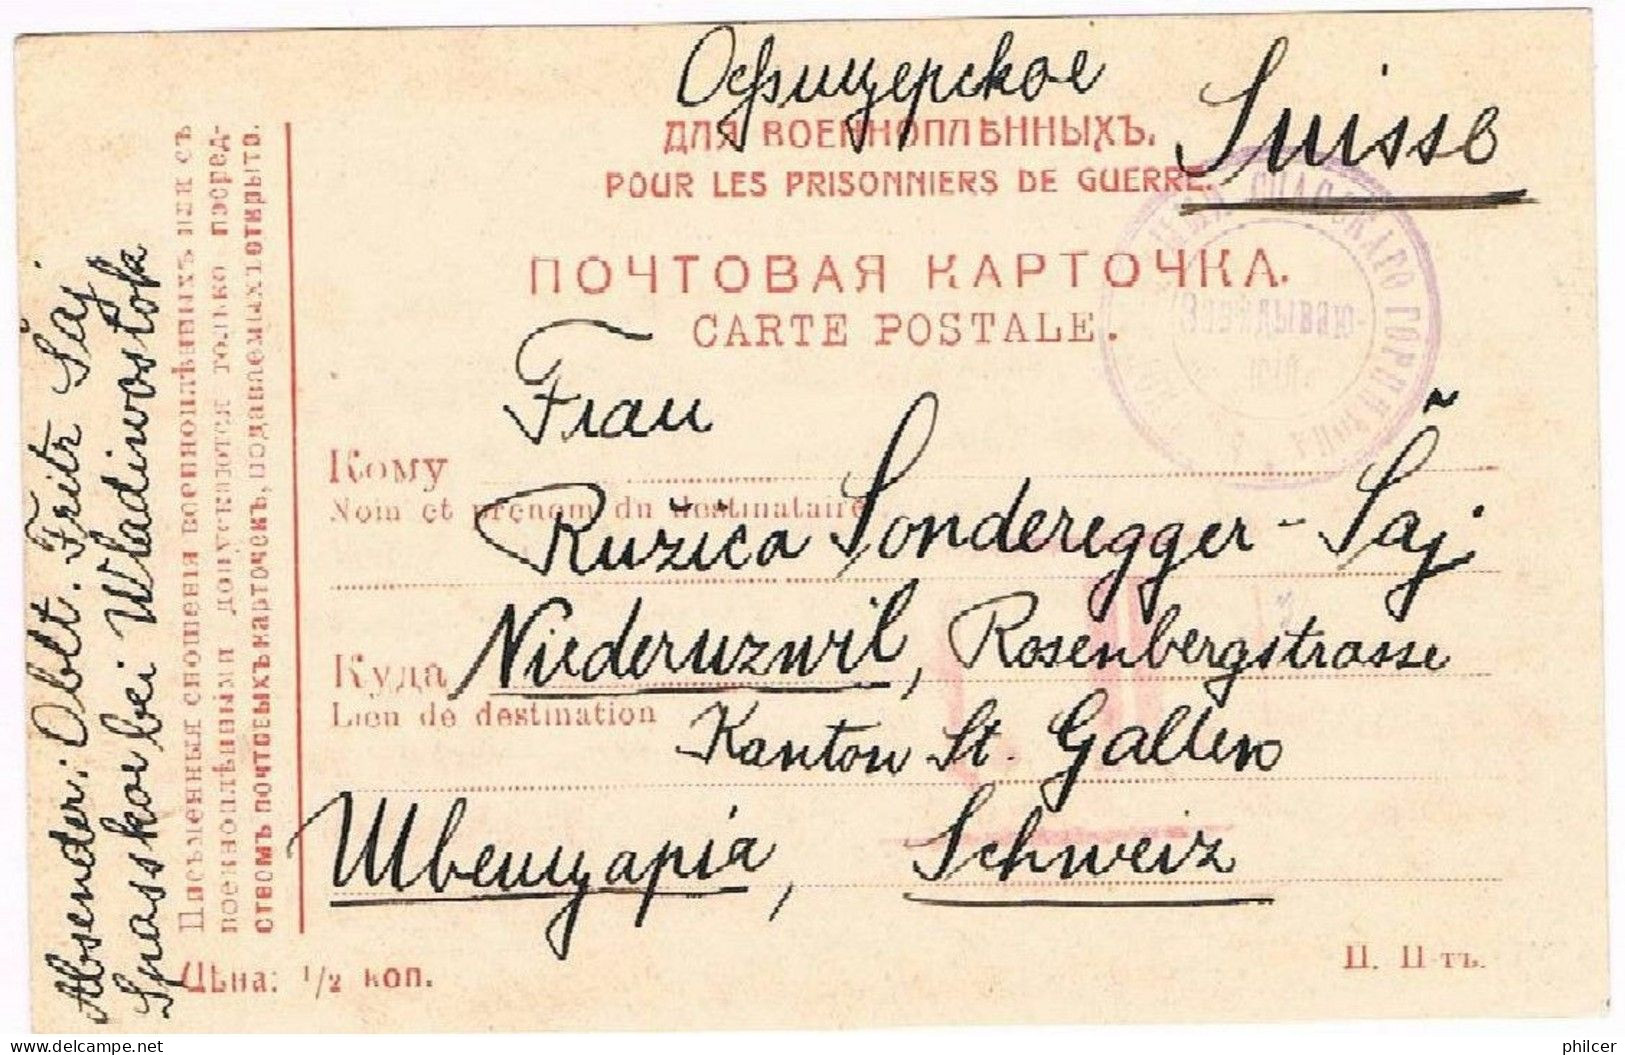 Офицерское
Suisse
ДЛЯ ВОЕННОПЛѢННЫХЪ.
POUR LES PRISONNIERS DE GUERRE.
ПОЧТОВАЯ КАРТОЧКА.
CARTE POSTALE.
СПАССКАГО ГАРНИЗОНА
Завѣдываю-
щій
Frau
Кому
Nom et prénom du destinataire
Ružica Sonderegger-Šaj
Niederuzwil, Rosenbergstrasse
Куда
Lieu de destination
Kanton St. Gallen
Швейцарія, Schweiz
Цѣна: 1/2 коп.
П. П-тъ.
Absender: Oblt. Fritz Šaj
Spasskoe bei Wladiwostok
Письменныя сношенія военноплѣнныхъ или съ
военноплѣнными допускаются только посред-
ствомъ почтовыхъ карточекъ, подаваемыхъ открыто.
philcer